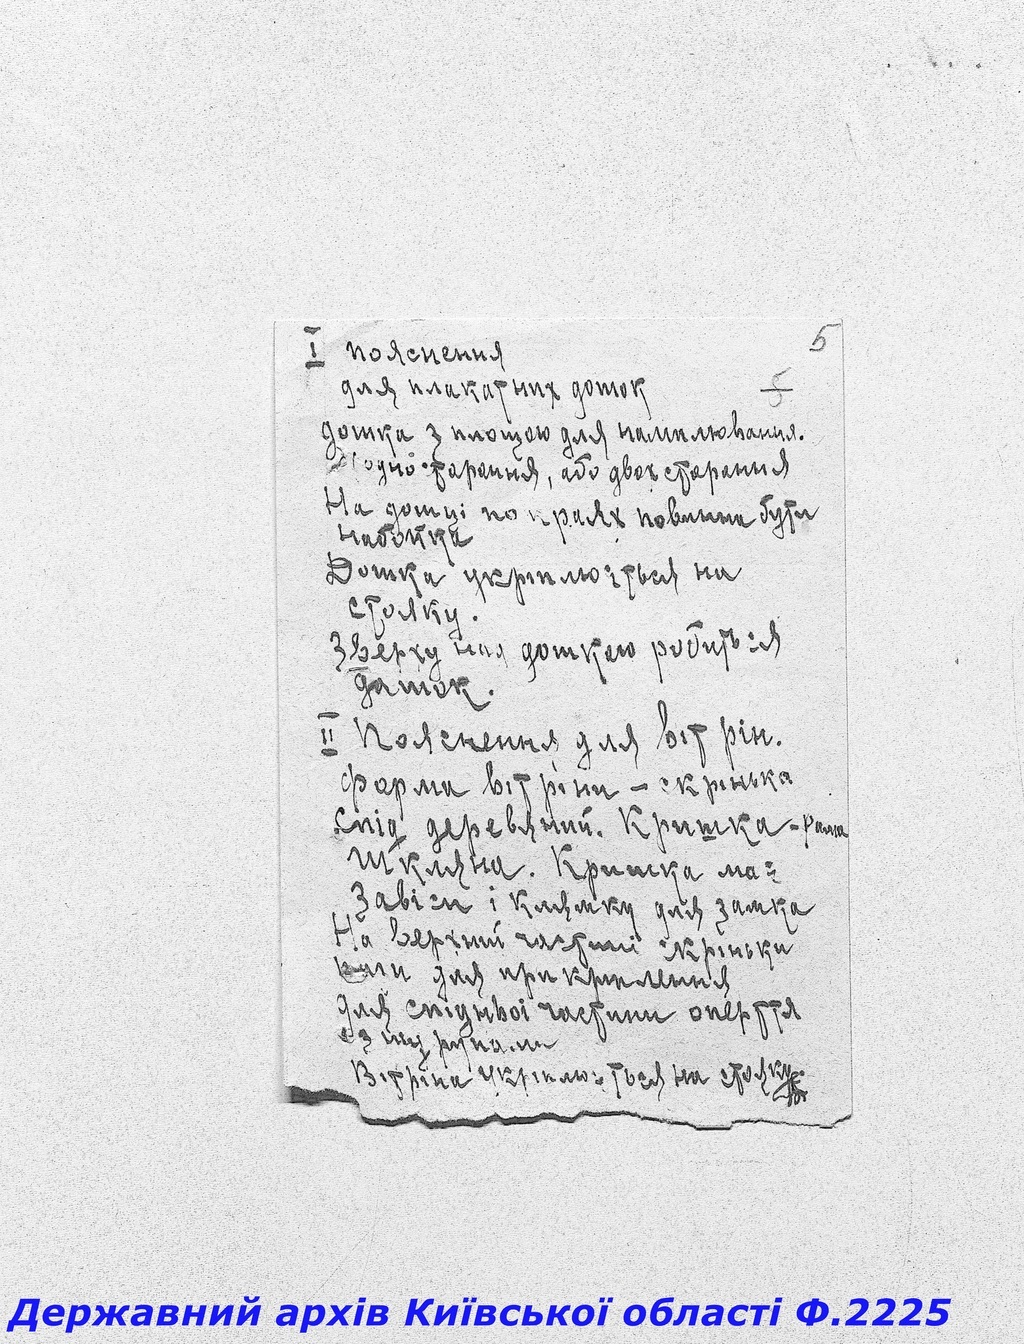 5
I пояснення
5
для плакатних дошок
дошка з площою для наклювання.
одностарання, або двохстарання
На дошці по краях повинна бути
набойка
Дошка укріплюється на
стояку.
Зверху над дошкою робиться
дашок.
II Пояснення для вітрін.
форма вітріни – скрінька
спід деревяний. Кришка – рама
шкляна. Кришка має
завіси і клямку для замка
На верхній частині скріньки
для прикриплення
для спідньої частини оперття
з шурупами
Вітріна укріплюється на стояку.
Державний архів Київської області Ф.2225